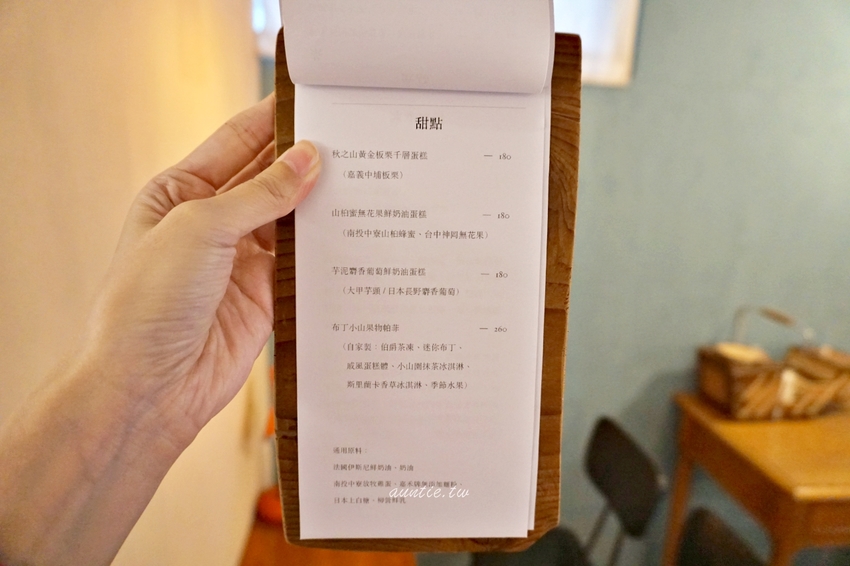 甜點
秋之山黃金板栗千層蛋糕 — 180
（嘉義中埔板栗）
山柏蜜無花果鮮奶油蛋糕 — 180
（南投中寮山柏蜂蜜、台中神岡無花果）
芋泥麝香葡萄鮮奶油蛋糕 — 180
（大甲芋頭/日本長野麝香葡萄）
布丁小山果物帕菲 — 260
（自家製：伯爵茶凍、迷你布丁、
戚風蛋糕體、小山園抹茶冰淇淋、
斯里蘭卡香草冰淇淋、季節水果）
適用原料：
法國伊斯尼鮮奶油、奶油
南投中寮放牧雞蛋、
日本上白糖、柳營鮮乳
auntie.tw